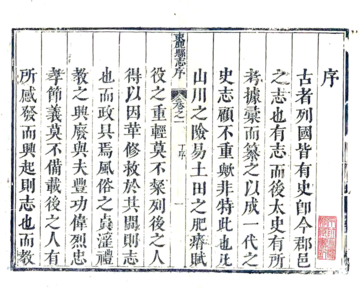 序
古者列國皆有史卽今郡邑
之志也有志而後太史有所
考據彙而纂之以成一代之
史志顧不重歟非特此也凡
山川之險易土田之肥瘠賦
東鹿縣志序
卷之一
丁序
一
役之重輕莫不粲列後之人
得以因革修救於其間則志
也而政具焉風俗之貞淫禮
教之興廢與夫豐功偉烈忠
孝節義莫不備載後之人有
所感發而興起則志也而教